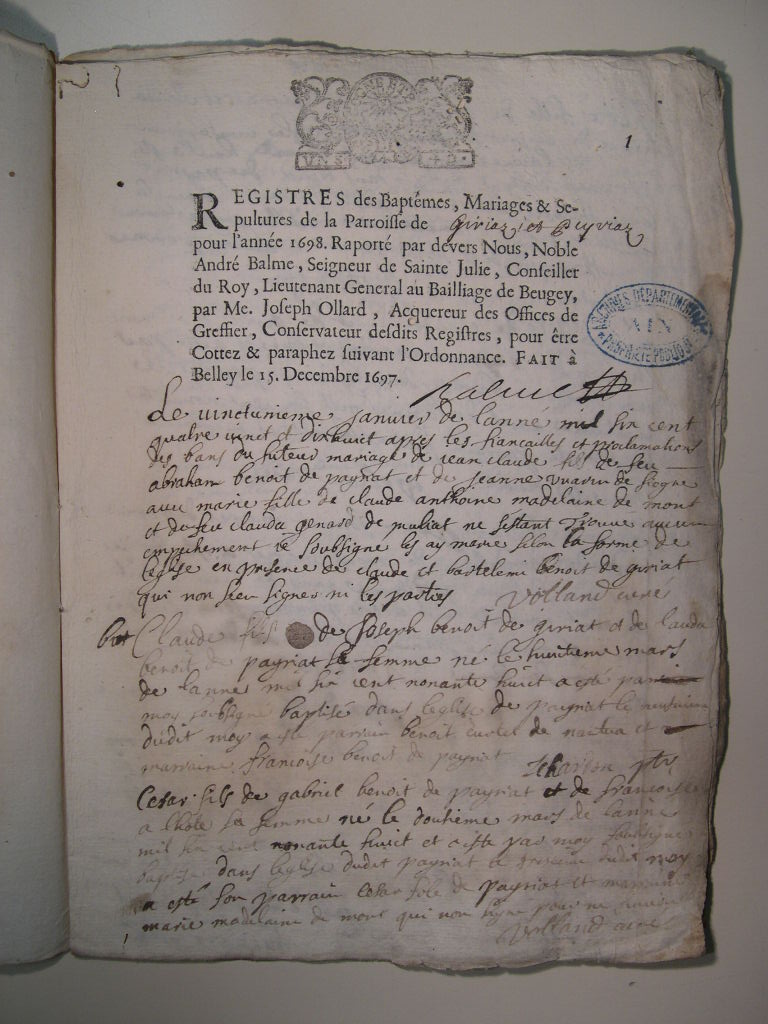 1
REGISTRES des Baptêmes, Mariages & Se-
pultures de la Parroisse de Giriaz et Peyriaz
pour l'année 1698. Raporté par devers Nous, Noble
André Balme, Seigneur de Sainte Julie, Conseiller
du Roy, Lieutenant General au Bailliage de Beugey,
par Me. Joseph Ollard, Acquereur des Offices de
Greffier, Conservateur desdits Registres, pour être
Cottez & paraphez suivant l'Ordonnance. FAIT à
Belley le 15. Decembre 1697.
Balme
ARCHIVES DEPARTEMENTALES
AIN
PROPRIETE PUBLIQUE
Le vinctunieme janvier de lanné mil six cent
quatre vinct et dixhuict apres les fiancailles et proclamations
des bans du futeur mariage de jean claude fils de feu
abraham benoit de payriat et de jeanne vuarin de siogne
avec marie fille de claude anthoine madelaine de mont
et de feu clauda genard de muliat ne sestant trouvé aucun
empechement ie soubsigne les ay marie selon la forme de
leglise en presence de claude et bartelemi benoit de giriat
qui non sceu signer ni les parties Volland curé
bat Claude fils de Joseph benoit de giriat et de clauda
benoit de payriat sa femme né le huictieme mars
de lanne mil six cent nonante huict a esté par
moy soubsigné baptisé dans leglise de payriat le
dudit moy a esté parrain benoit de nantua et
marraine francoise benoit de payriat
Cesar fils de gabriel benoit de payriat et de francoise
a lhote sa femme né le douzieme mars de lanne
mil six cent nonante huict et a esté par moy soubsigne
baptisé dans leglise dudit payriat le dudit moy
a esté son parrain Cesar de payriat et marraine
marie madelaine de mont qui non signe pour ne
Volland curé